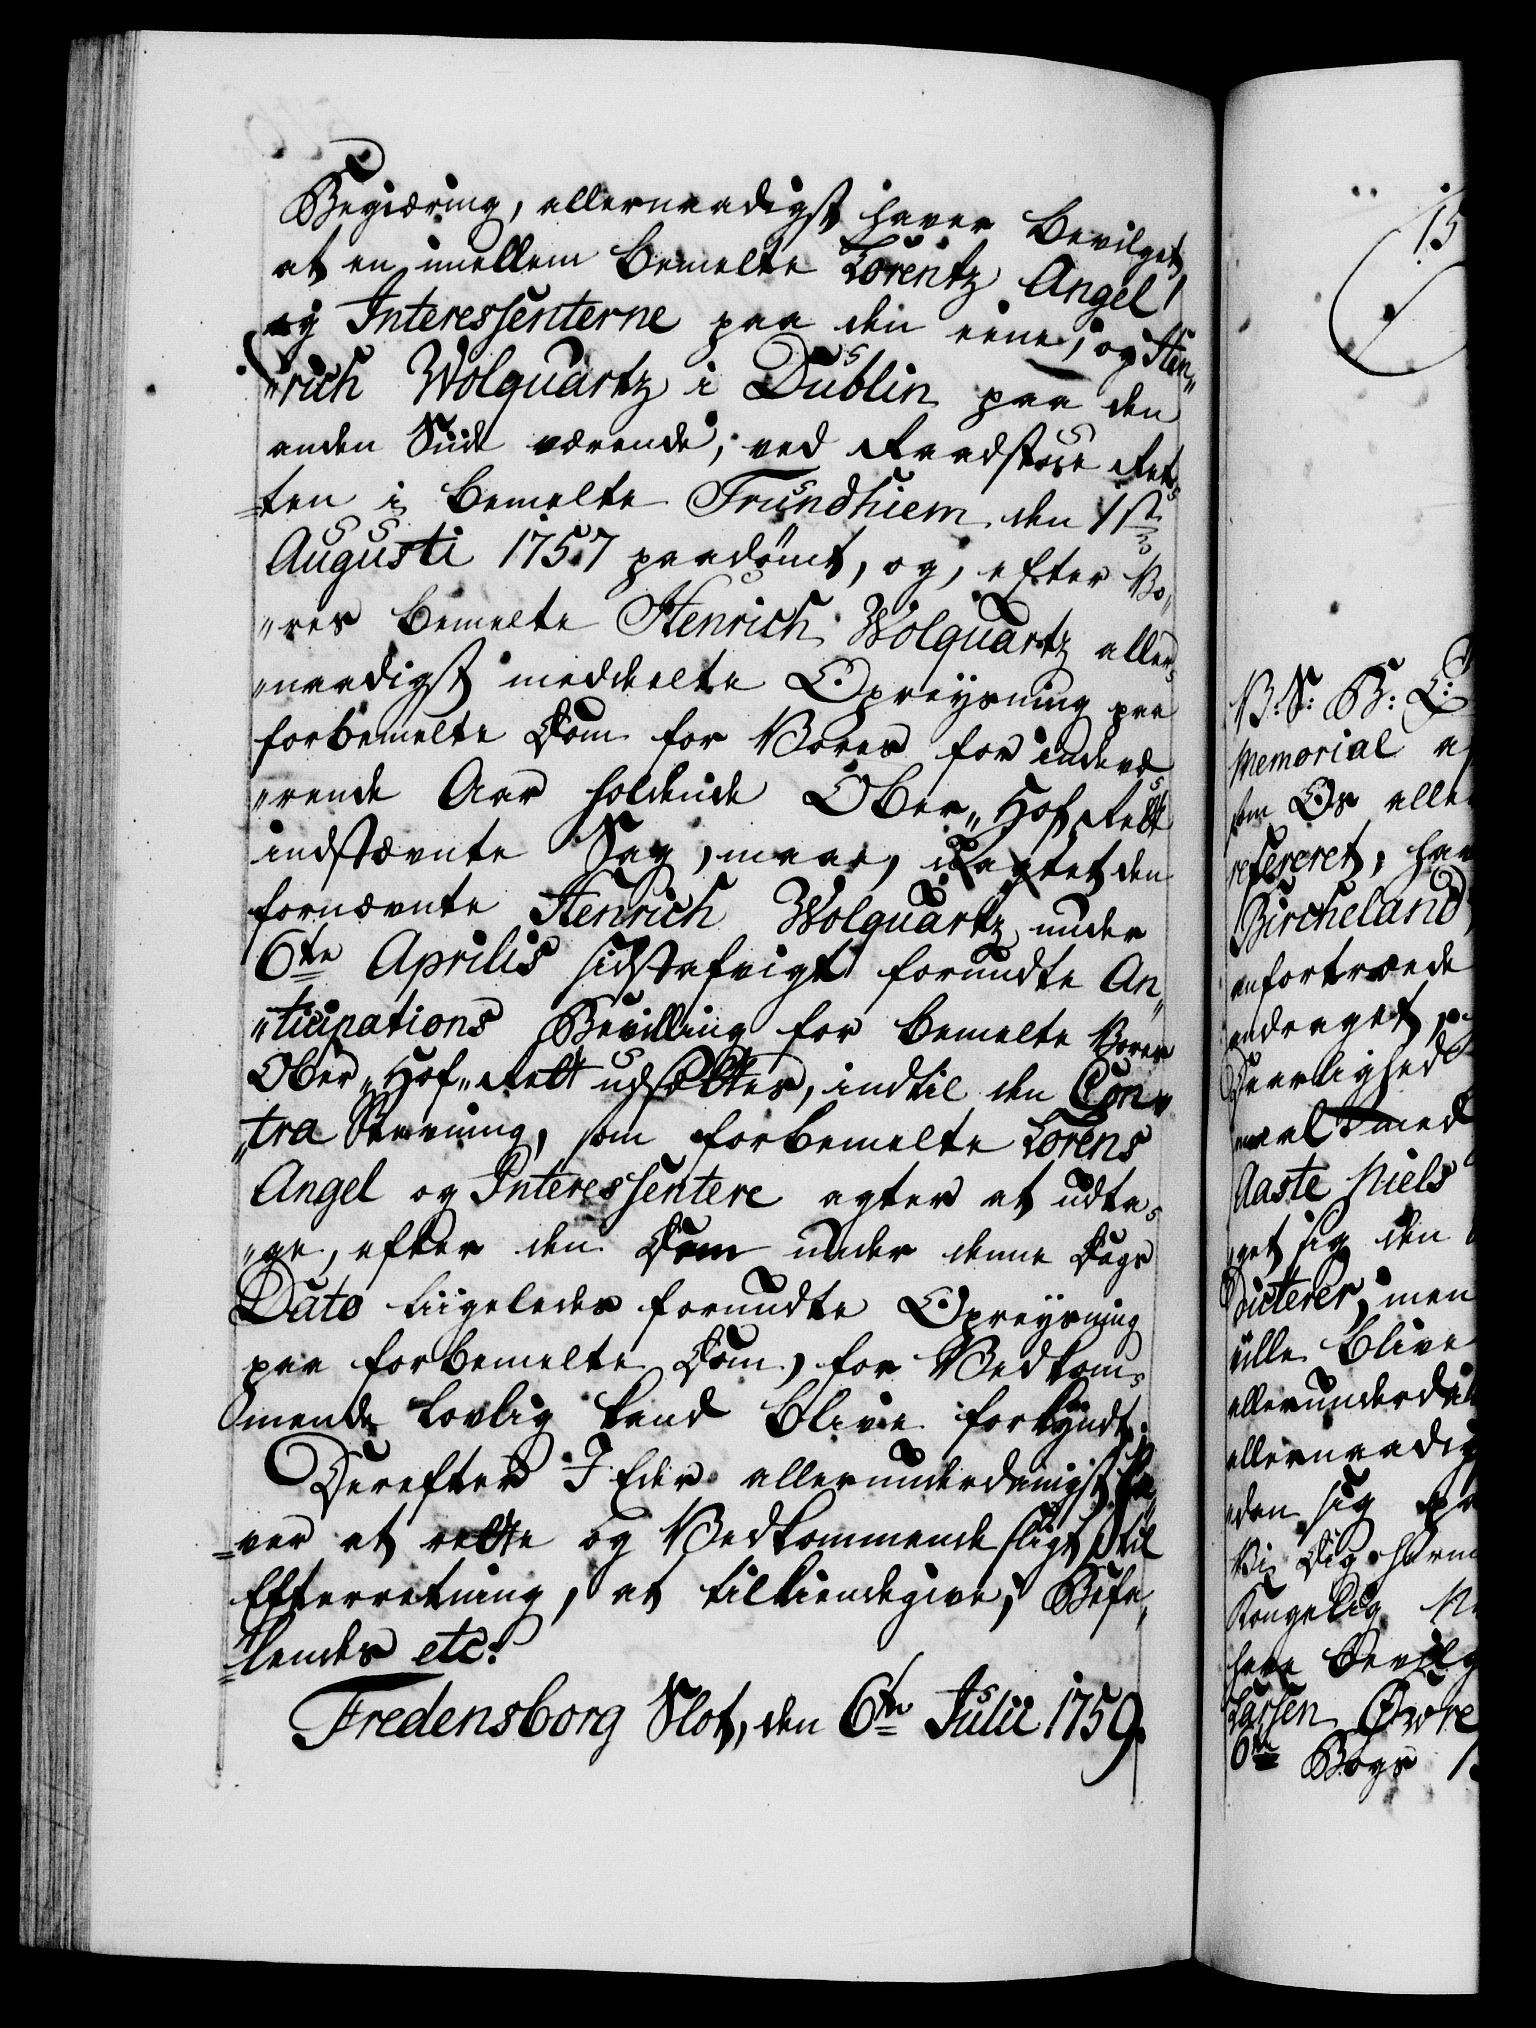 Begiæring, allernaadigst haver bevilget,
at en imellem bemelte Lorentz Angel
og Interessenterne paa den eene, og Hen„
„rich Wolquartz i Dublin paa den
anden Siide værende, ved Raadstue Ret„
„ten i bemelte Trundhiem den 1ste
Augusti 1757 paadømt, og, efter Vo„
„res bemelte Henrich Wolquartz aller„
„naadigst meddeelte Opreysning paa
forbemelte Dom for Vores for indevæ„
„rende Aar holdende Ober„Hof Rett
indstævnte Sag, maae, uagtet den
fornævnte Henrich Wolquartz under
6te Aprilis sidstafvigt forundte An„
„ticipations Bevilling for bemelte Vores
Ober„Hof„Rett udsættes, indtil den Con„
„tra Stevning, som forbemelte Lorens
Angel og Interessentere agter at udta„
„ge, efter den Dem under denne Dags
Dato liigeledes forundte Opreysning
paa forbemelte Dom, for Vedkom„
„mende lovlig kand blive forkyndt.
Derefter I Eder allerunderdanigst ha„
„ver at rette og Vedkommende sligt til
Efterretning, at tilkiendegive, Befa„
„lendes etc.
Fredensborg Slot, den 6te Julii 1759.
15
V: S: B: L:
Memorial
som Os alle
refereret, hav
Bircheland
andraget
med
Aaste Niels
get sig den
men
ville blive
allerunderda
allernaadig
den sig
Vi Dig herm
Kongelig
have bevilg
Larssen
6te Bogs